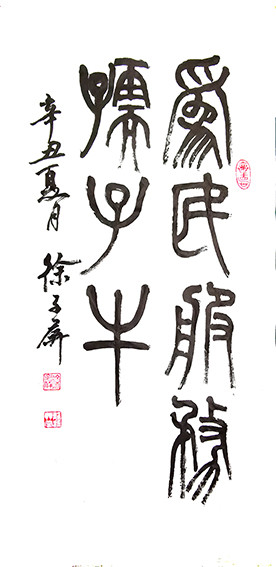 為民服務
孺子牛
辛丑夏月 徐子屏